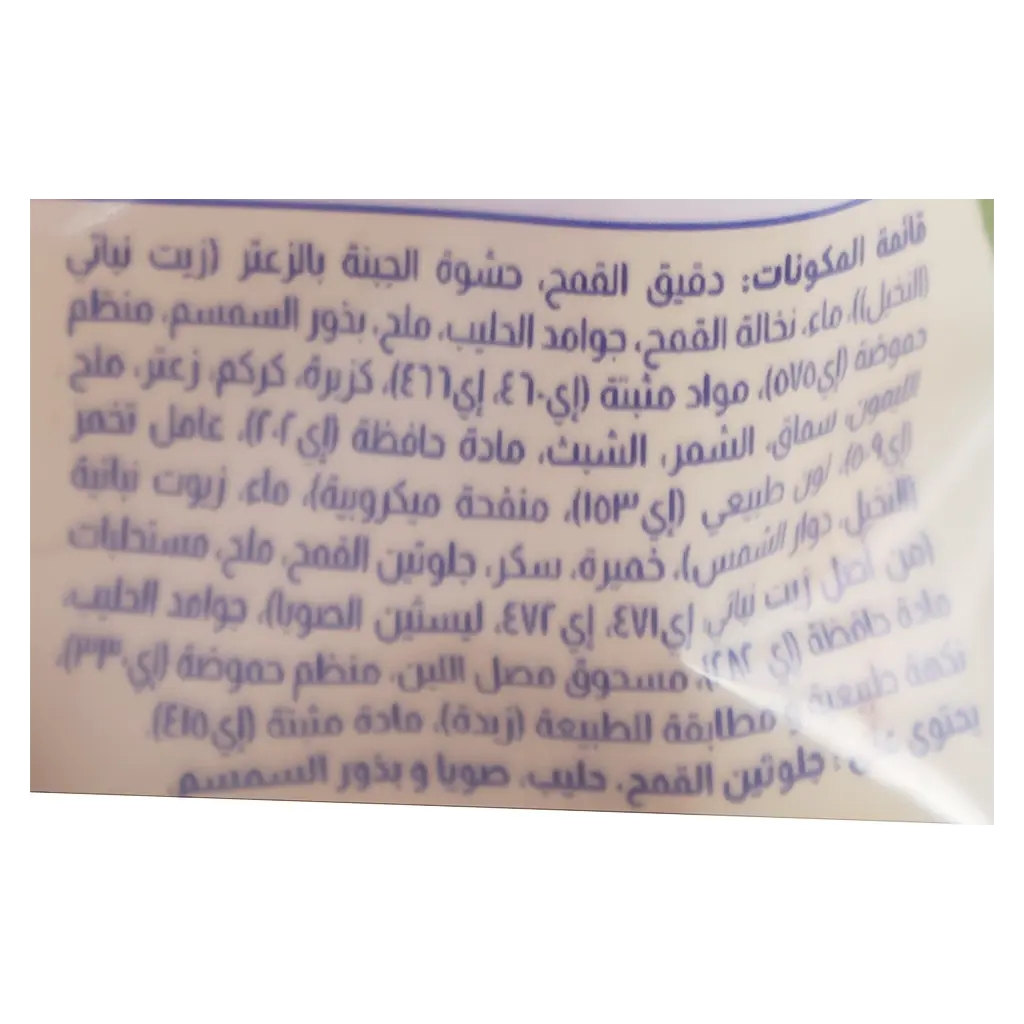 قائمة المكونات: دقيق القمح، حشوة الجبنة بالزعتر (زيت نباتي
(النخيل))، ماء، نخالة القمح، جوامد الحليب، ملح، بذور السمسم، منظم
حموضة (إي٥٧٥)، مواد مثبتة (إي٤٦٠، إي٤٦٦)، كزبرة، كركم، زعتر، ملح
الليمون، سماق، الشمر، الشبث، مادة حافظة (إي٢٠٢)، عامل تخمر
(إي٥٠٩)، لون طبيعي (إي١٥٣)، منفحة ميكروبية)، ماء، زيوت نباتية
(النخيل، دوار الشمس)، خميرة، سكر، جلوتين القمح، ملح، مستحلبات
(من أصل زيت نباتي إي٤٧١، إي٤٧٢، ليسثين الصويا)، جوامد الحليب،
مادة حافظة (إي ٢٨٢)، مسحوق مصل اللبن، منظم حموضة (إي٣٣٠)،
نكهة طبيعية و مطابقة للطبيعة (زبدة)، مادة مثبتة (إي٤١٥).
يحتوي على: جلوتين القمح، حليب، صويا و بذور السمسم.